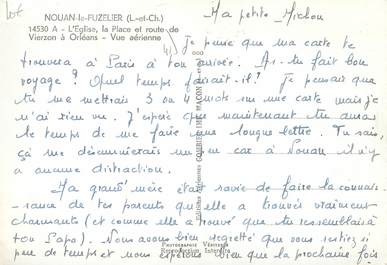 NOUAN-le-FUZELIER (L.-et-Ch.)
14530 A - L'Eglise, la Place et route de
Vierzon à Orléans - Vue aérienne
Ma petite Michou
Je pense que ma carte te
trouvera à Paris à ton arrivée. As-tu fait bon
voyage ? Quel temps faisait-il ? Je pensais que
tu me mettrais 3 ou 4 mots sur une carte mais je
n'ai rien vu. J'espère que maintenant tu auras
le temps de me faire une longue lettre. Tu sais,
ça me désennuierait un peu car à Nouan il n'y
a aucune distraction.
Ma grand'mère était ravie de faire la connais-
sance de tes parents qu'elle a trouvés vraiment
charmants (et comme elle a trouvé que tu ressemblais à
ton Papa). Nous avons bien regretté que vous restiez si
peu de temps et nous espérons bien que la prochaine fois
Editions Aériennes COMBIER IMP. MACON
PHOTOGRAPHIE VÉRITABLE
Reproduction Interdite